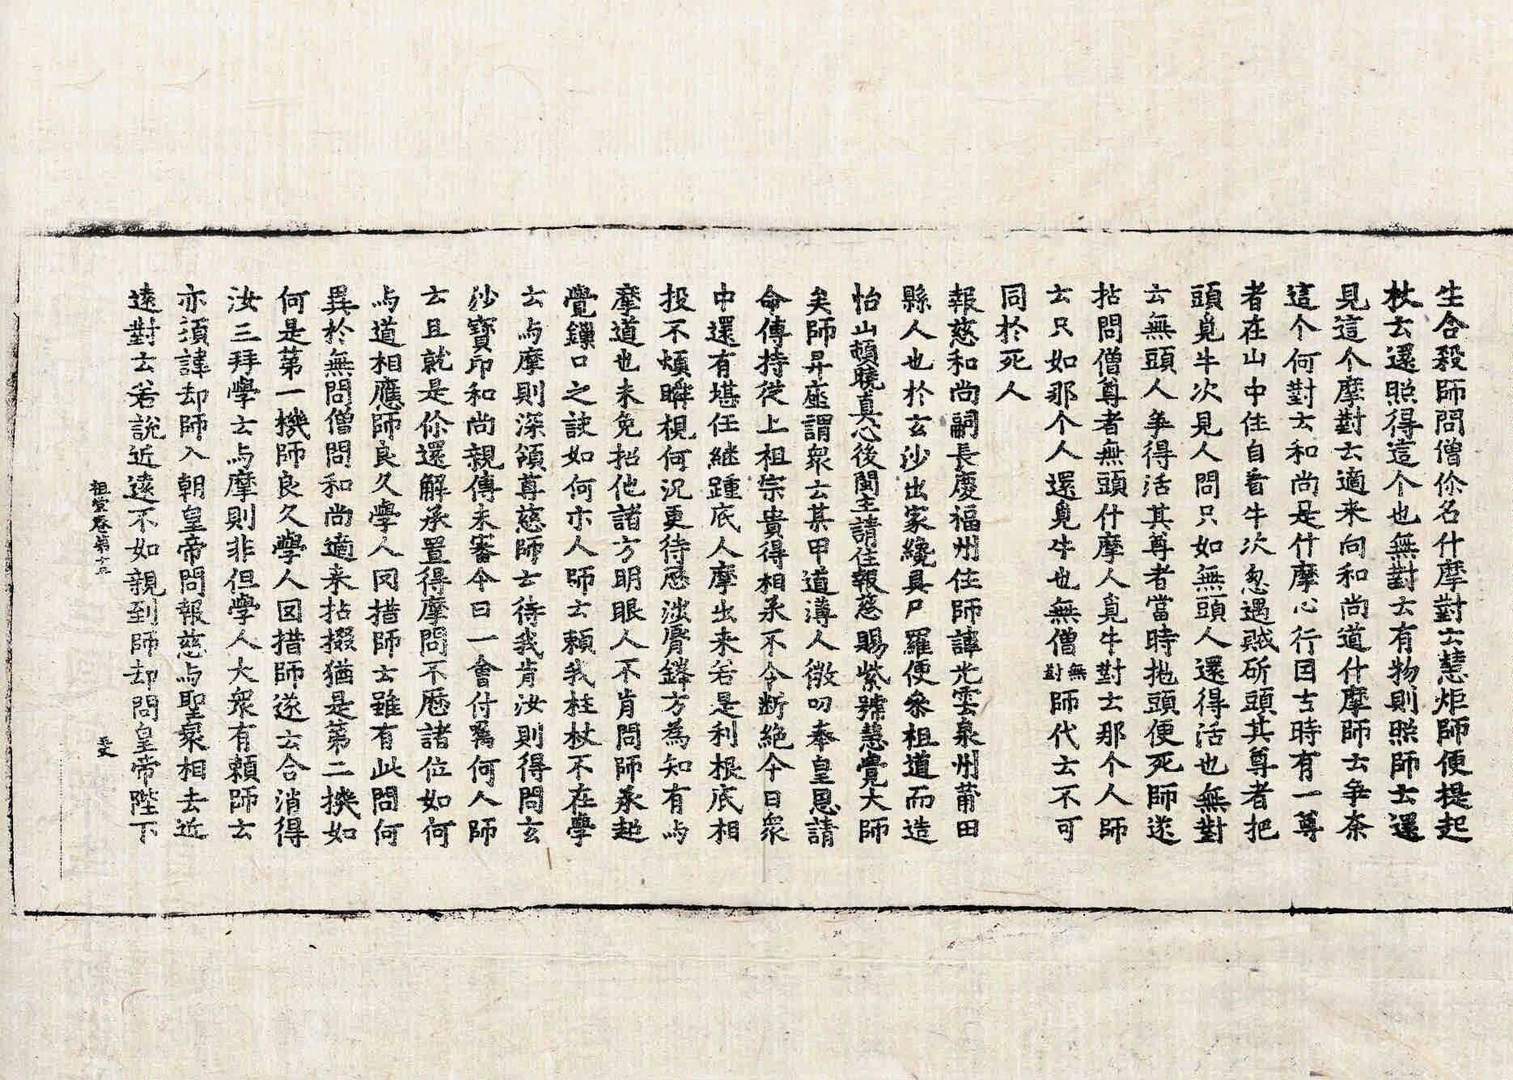 生合殺師問僧你名什摩對云慧炬師便提起
杖云還照得這个也無對云有物則照師云還
見這个摩對云適来向和尚道什摩師云爭奈
這个何對云和尚是什摩心行因古時有一尊
者在山中住自看牛次忽遇賊斫頭其尊者把
頭覓牛次見人問只如無頭人還得活也無對
云無頭人爭得活其尊者當時抛頭便死師遂
拈問僧尊者無頭什摩人覓牛對云那个人師
云只如那个人還覓牛也無僧無對師代云不可
同於死人
報慈和尚嗣長慶福州住師諱光雲泉州莆田
縣人也於玄沙出家纔具尸羅便叅祖道而造
怡山頓曉真心後閩主請住報慈賜紫號慧覺大師
矣師昇座謂衆云某甲道薄人微叨奉皇恩請
命傳持從上祖宗貴得相承不令断絶今日衆
中還有堪任継踵底人摩出来若是利根底相
投不煩瞬視何況更待忉忉脣鋒方為知有与
摩道也未免招他諸方明眼人不肯問師承超
覺鏁口之訣如何示人師云頼我柱杖不在學
云与摩則深領尊慈師云待我肯汝則得問玄
沙寶印和尚親傳未審今日一會付囑何人師
云且就是你還解承置得摩問不歷諸位如何
与道相應師良久學人罔措師云雖有此問何
異於無問僧問和尚適来拈掇猶是第二機如
何是第一機師良久學人因措師遂云合消得
汝三拜學云与摩則非但學人大衆有頼師云
亦須諱却師入朝皇帝問報慈与聖泉相去近
遠對云若說近遠不如親到師却問皇帝陛下
祖堂卷第十三